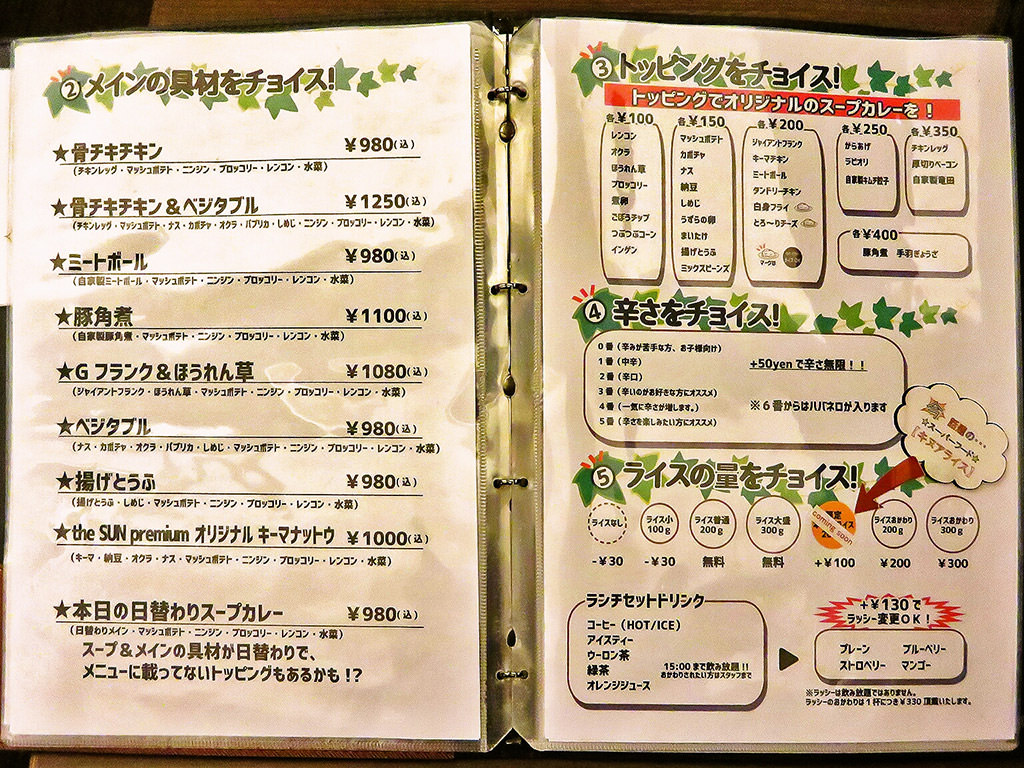 ②メインの具材をチョイス!
★骨チキチキン ￥980(込)
(チキンレッグ・マッシュポテト・ニンジン・ブロッコリー・レンコン・水菜)
★骨チキチキン＆ベジタブル ￥1250(込)
(チキンレッグ・マッシュポテト・ナス・カボチャ・オクラ・パプリカ・しめじ・ニンジン・ブロッコリー・レンコン・水菜)
★ミートボール ￥980(込)
(自家製ミートボール・マッシュポテト・ニンジン・ブロッコリー・レンコン・水菜)
★豚角煮 ￥1100(込)
(自家製豚角煮・マッシュポテト・ニンジン・ブロッコリー・レンコン・水菜)
★G フランク＆ほうれん草 ￥1080(込)
(ジャイアントフランク・ほうれん草・マッシュポテト・ニンジン・ブロッコリー・レンコン・水菜)
★ベジタブル ￥980(込)
(ナス・カボチャ・オクラ・パプリカ・しめじ・マッシュポテト・ニンジン・ブロッコリー・レンコン・水菜)
★揚げとうふ ￥980(込)
(揚げとうふ・しめじ・マッシュポテト・ニンジン・ブロッコリー・レンコン・水菜)
★the SUN premium オリジナル キーマナットウ ￥1000(込)
(キーマ・納豆・オクラ・ナス・マッシュポテト・ニンジン・ブロッコリー・レンコン・水菜)
★本日の日替わりスープカレー ￥980(込)
(日替わりメイン・マッシュポテト・ニンジン・ブロッコリー・レンコン・水菜)
スープ＆メインの具材が日替わりで、
メニューに載ってないトッピングもあるかも!?
③トッピングをチョイス!
トッピングでオリジナルのスープカレーを！
各￥100
レンコン
オクラ
ほうれん草
ブロッコリー
煮卵
ごぼうチップ
つぶつぶコーン
インゲン
各￥150
マッシュポテト
カボチャ
ナス
納豆
しめじ
うずらの卵
まいたけ
揚げとうふ
ミックスビーンズ
各￥200
ジャイアントフランク
キーマチキン
ミートボール
タンドリーチキン
白身フライ
とろ〜りチーズ
マークは
各￥250
からあげ
ラビオリ
自家製キムチ餃子
各￥350
チキンレッグ
厚切りベーコン
自家製竜田
各￥400
豚角煮 手羽ぎょうざ
④辛さをチョイス!
0番（辛みが苦手な方、お子様向け）
1番（中辛）
2番（辛口）
3番（辛いのがお好きな方にオススメ）
4番（一気に辛さが増します。）
5番（辛さを楽しみたい方にオススメ）
+50yenで辛さ無限！！
※6番からはハバネロが入ります
⑤ライスの量をチョイス!
話題の…
☆スーパーフード☆
『キヌアライス』
ライスなし
-￥30
ライス小
100g
-￥30
ライス普通
200g
無料
ライス大盛
300g
無料
coming soon
+￥100
ライスおかわり
200g
￥200
ライスおかわり
300g
￥300
ランチセットドリンク
コーヒー（HOT/ICE）
アイスティー
ウーロン茶
緑茶
オレンジジュース
15:00まで飲み放題!!
おかわりされたい方はスタッフまで
+￥130で
ラッシー変更OK！
プレーン ブルーベリー
ストロベリー マンゴー
※ラッシーは飲み放題ではありません。
ラッシーのおかわりは1杯につき￥330頂戴いたします。